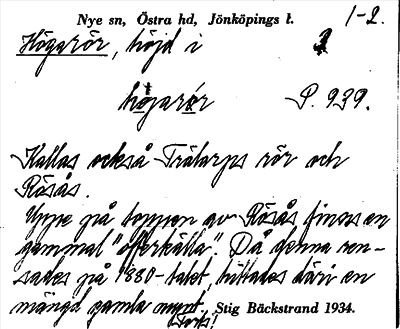 Nye sn, Östra hd, Jönköpings l. 1-2.
Högarör, höjd i
högarör P. 939.
Kallas också Trälarps rör och
Rösås.
Uppe på toppen av Rösås finnes en
gammal "offerkälla". Då denna ren-
sades på 1880-talet, hittades däri en
mängd gamla mynt. Stig Bäckstrand 1934.